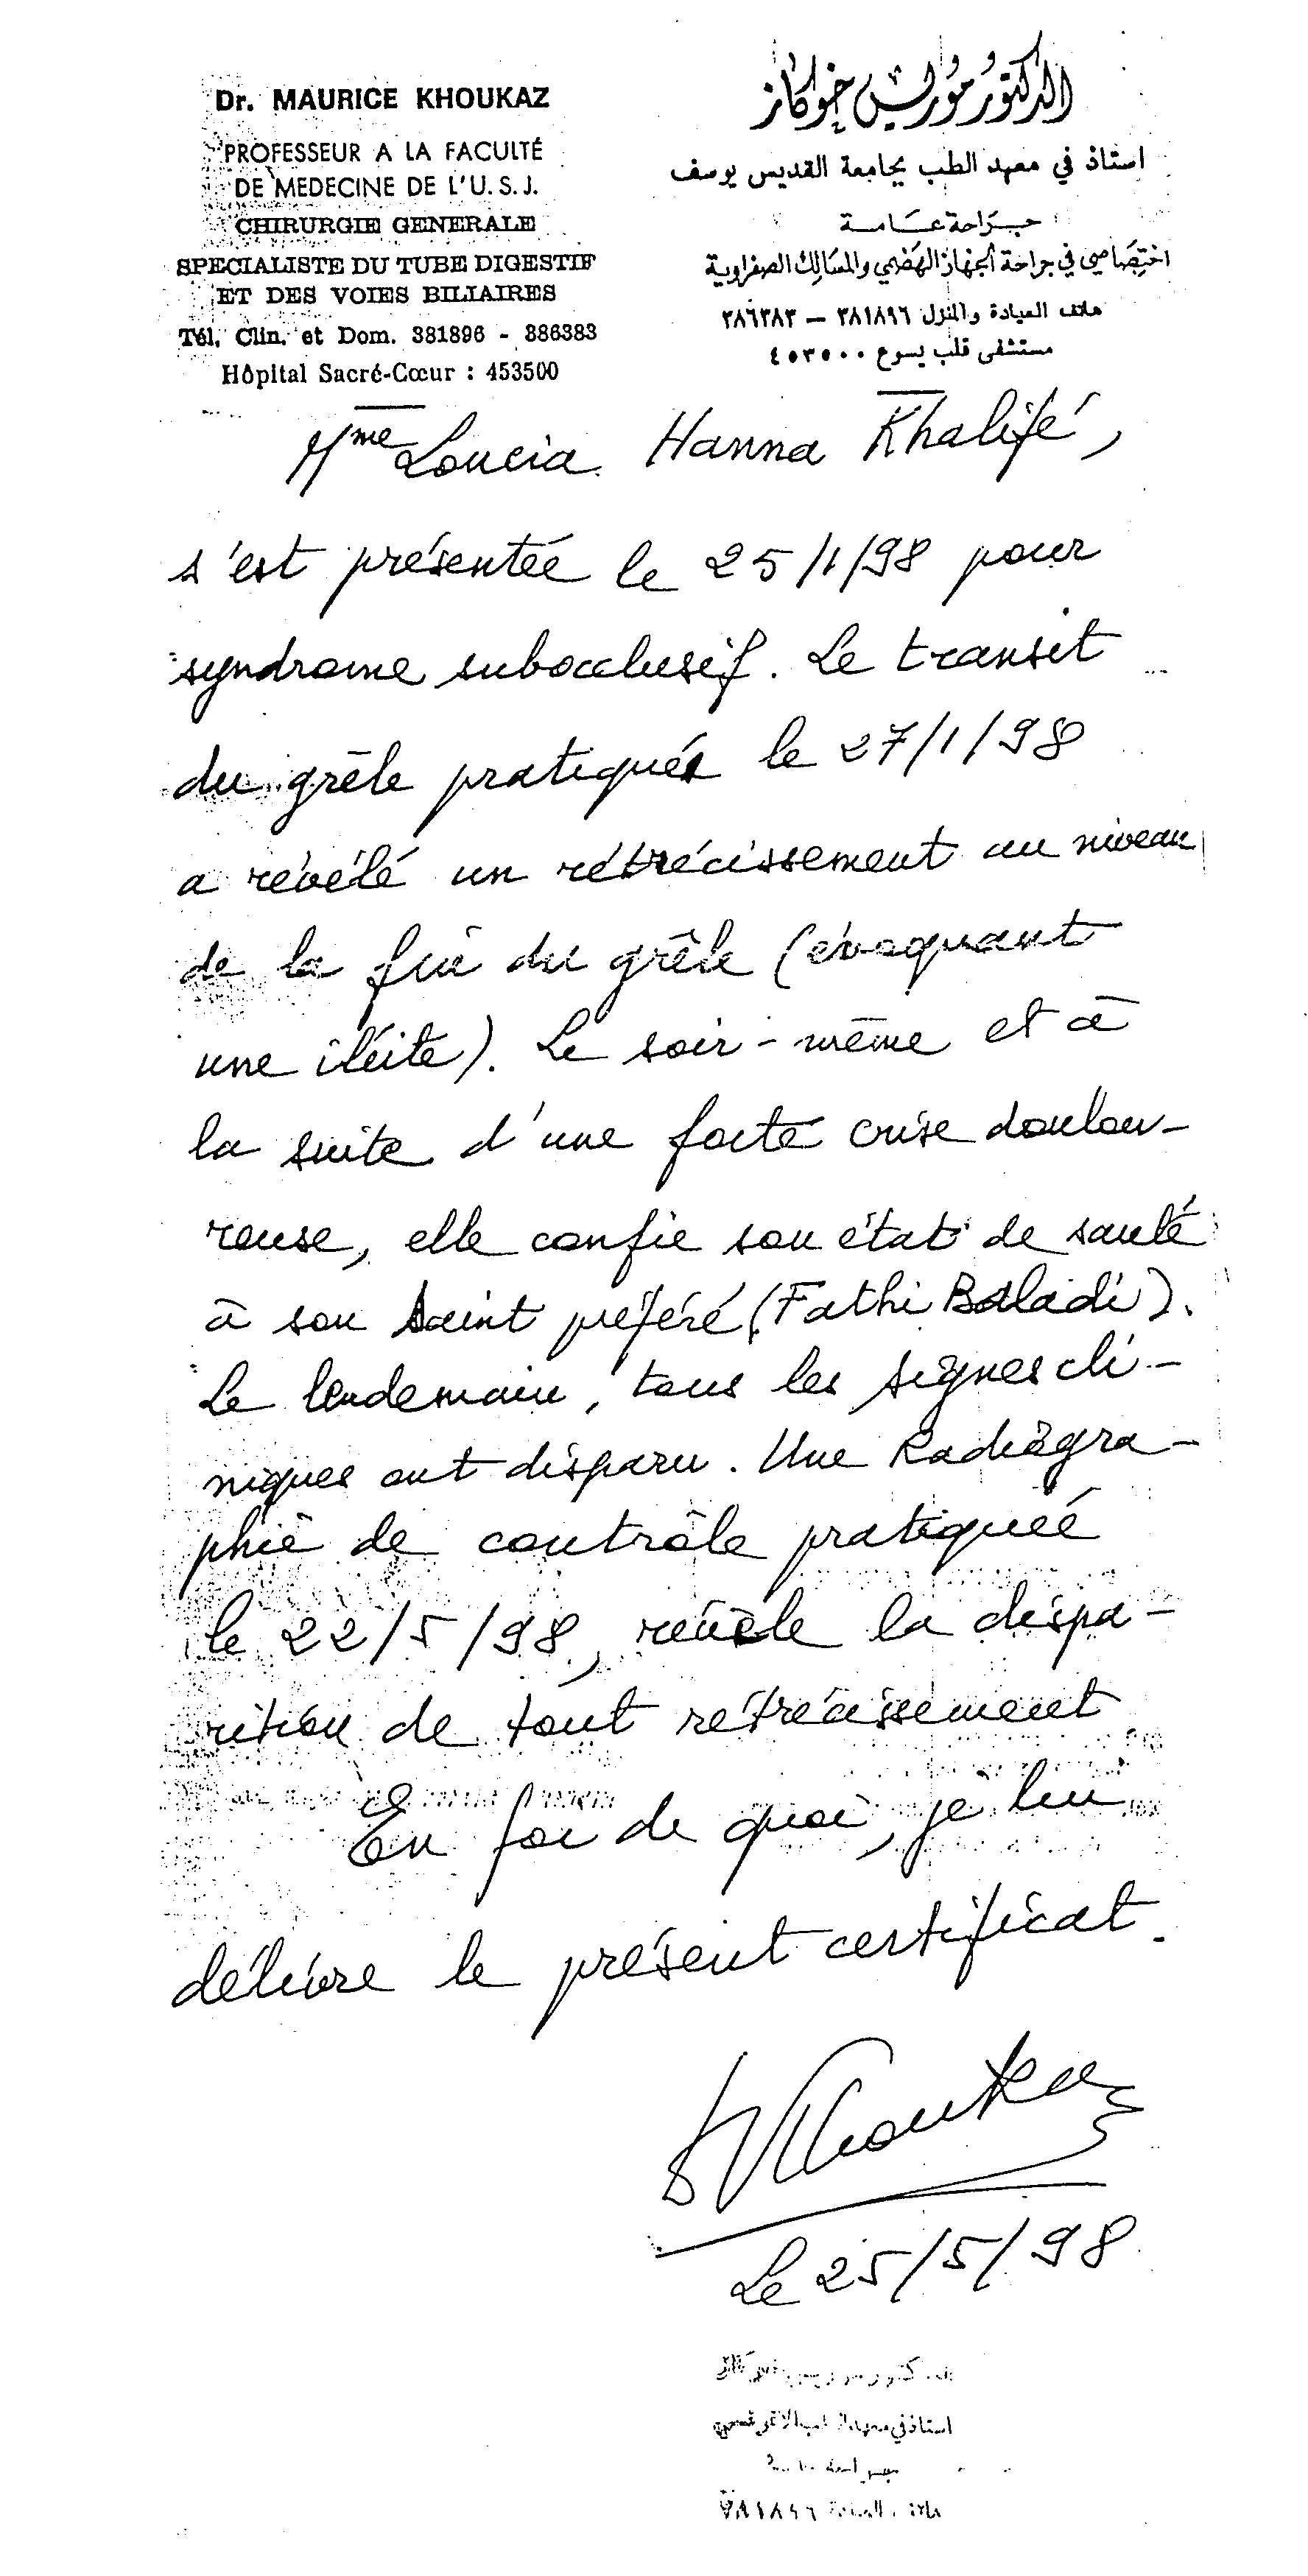 Dr. MAURICE KHOUKAZ
PROFESSEUR A LA FACULTÉ
DE MEDECINE DE L'U.S.J.
CHIRURGIE GENERALE
SPECIALISTE DU TUBE DIGESTIF
ET DES VOIES BILIAIRES
Tél. Clin. et Dom. 381896 - 386383
Hôpital Sacré-Cœur : 453500
الدكتور موريس خوكاز
استاذ في معهد الطب بجامعة القديس يوسف
جراحة عامة
اختصاصي في جراحة الجهاز الهضمي والمسالك الصفراوية
هاتف العيادة والمنزل ٣٨١٨٩٦ – ٣٨٦٣٨٣
مستشفى قلب يسوع ٤٥٣٥٠٠
Mme Loucia Hanna Khalifé,
s'est présentée le 25/1/98 pour
syndrome subocclusif. Le transit
du grêle pratiqué le 27/1/98
a révélé un rétrécissement au niveau
de la fin du grêle (évoquant
une iléite). Le soir-même et à
la suite d'une forte crise doulou-
reuse, elle confie son état de santé
à son Saint préféré (Fathi Baladi).
Le lendemain, tous les signes cli-
niques ont disparu. Une Radiogra-
phie de contrôle pratiquée
le 22/5/98, révèle la dispa-
rition de tout rétrécissement
En foi de quoi, je lui
délivre le présent certificat.
MKhoukaz
Le 25/5/98